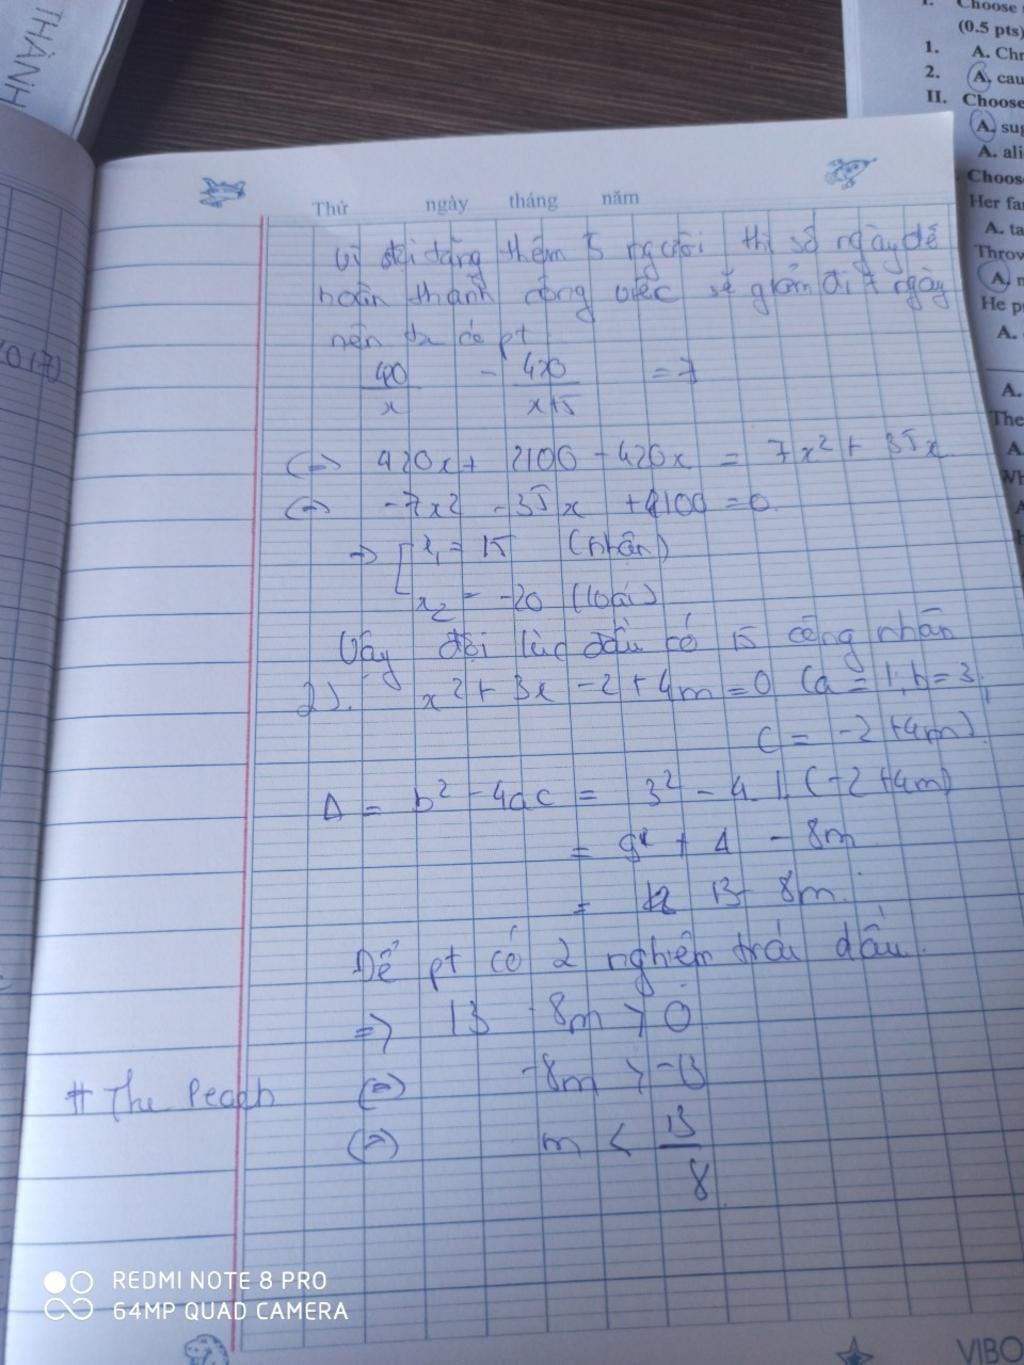 THÀNH
I. Choose
(0.5 pts)
1. A. Chr
2. A. cau
II. Choose
A. sug
A. ali
Choose
Her fa
A. ta
Throv
A. n
He p
A.
A.
The
A.
Wh
Thứ ngày tháng năm
Vì đội tăng thêm 5 người thì số ngày để
hoàn thành công việc sẽ giảm đi 7 ngày
nên ta có pt
420/x - 420/x+5 = 7
(=) 420x + 2100 - 420x = 7x² + 35x
(=) -7x² - 35x + 2100 = 0
=> [ x₁ = 15 (nhận)
x₂ = -20 (loại)
Vậy đội lúc đầu có 15 công nhân
2). x² + 3x - 2 + 4m = 0 (a = 1; b = 3;
c = -2 + 4m)
Δ = b² - 4ac = 3² - 4.1.(-2 + 4m)
= 9 + 4 - 8m
= 13 - 8m.
Để pt có 2 nghiệm trái dấu.
=> 13 - 8m > 0
(=) -8m > -13
(=) m < 13/8
# The Peach
REDMI NOTE 8 PRO
64MP QUAD CAMERA
VIBO